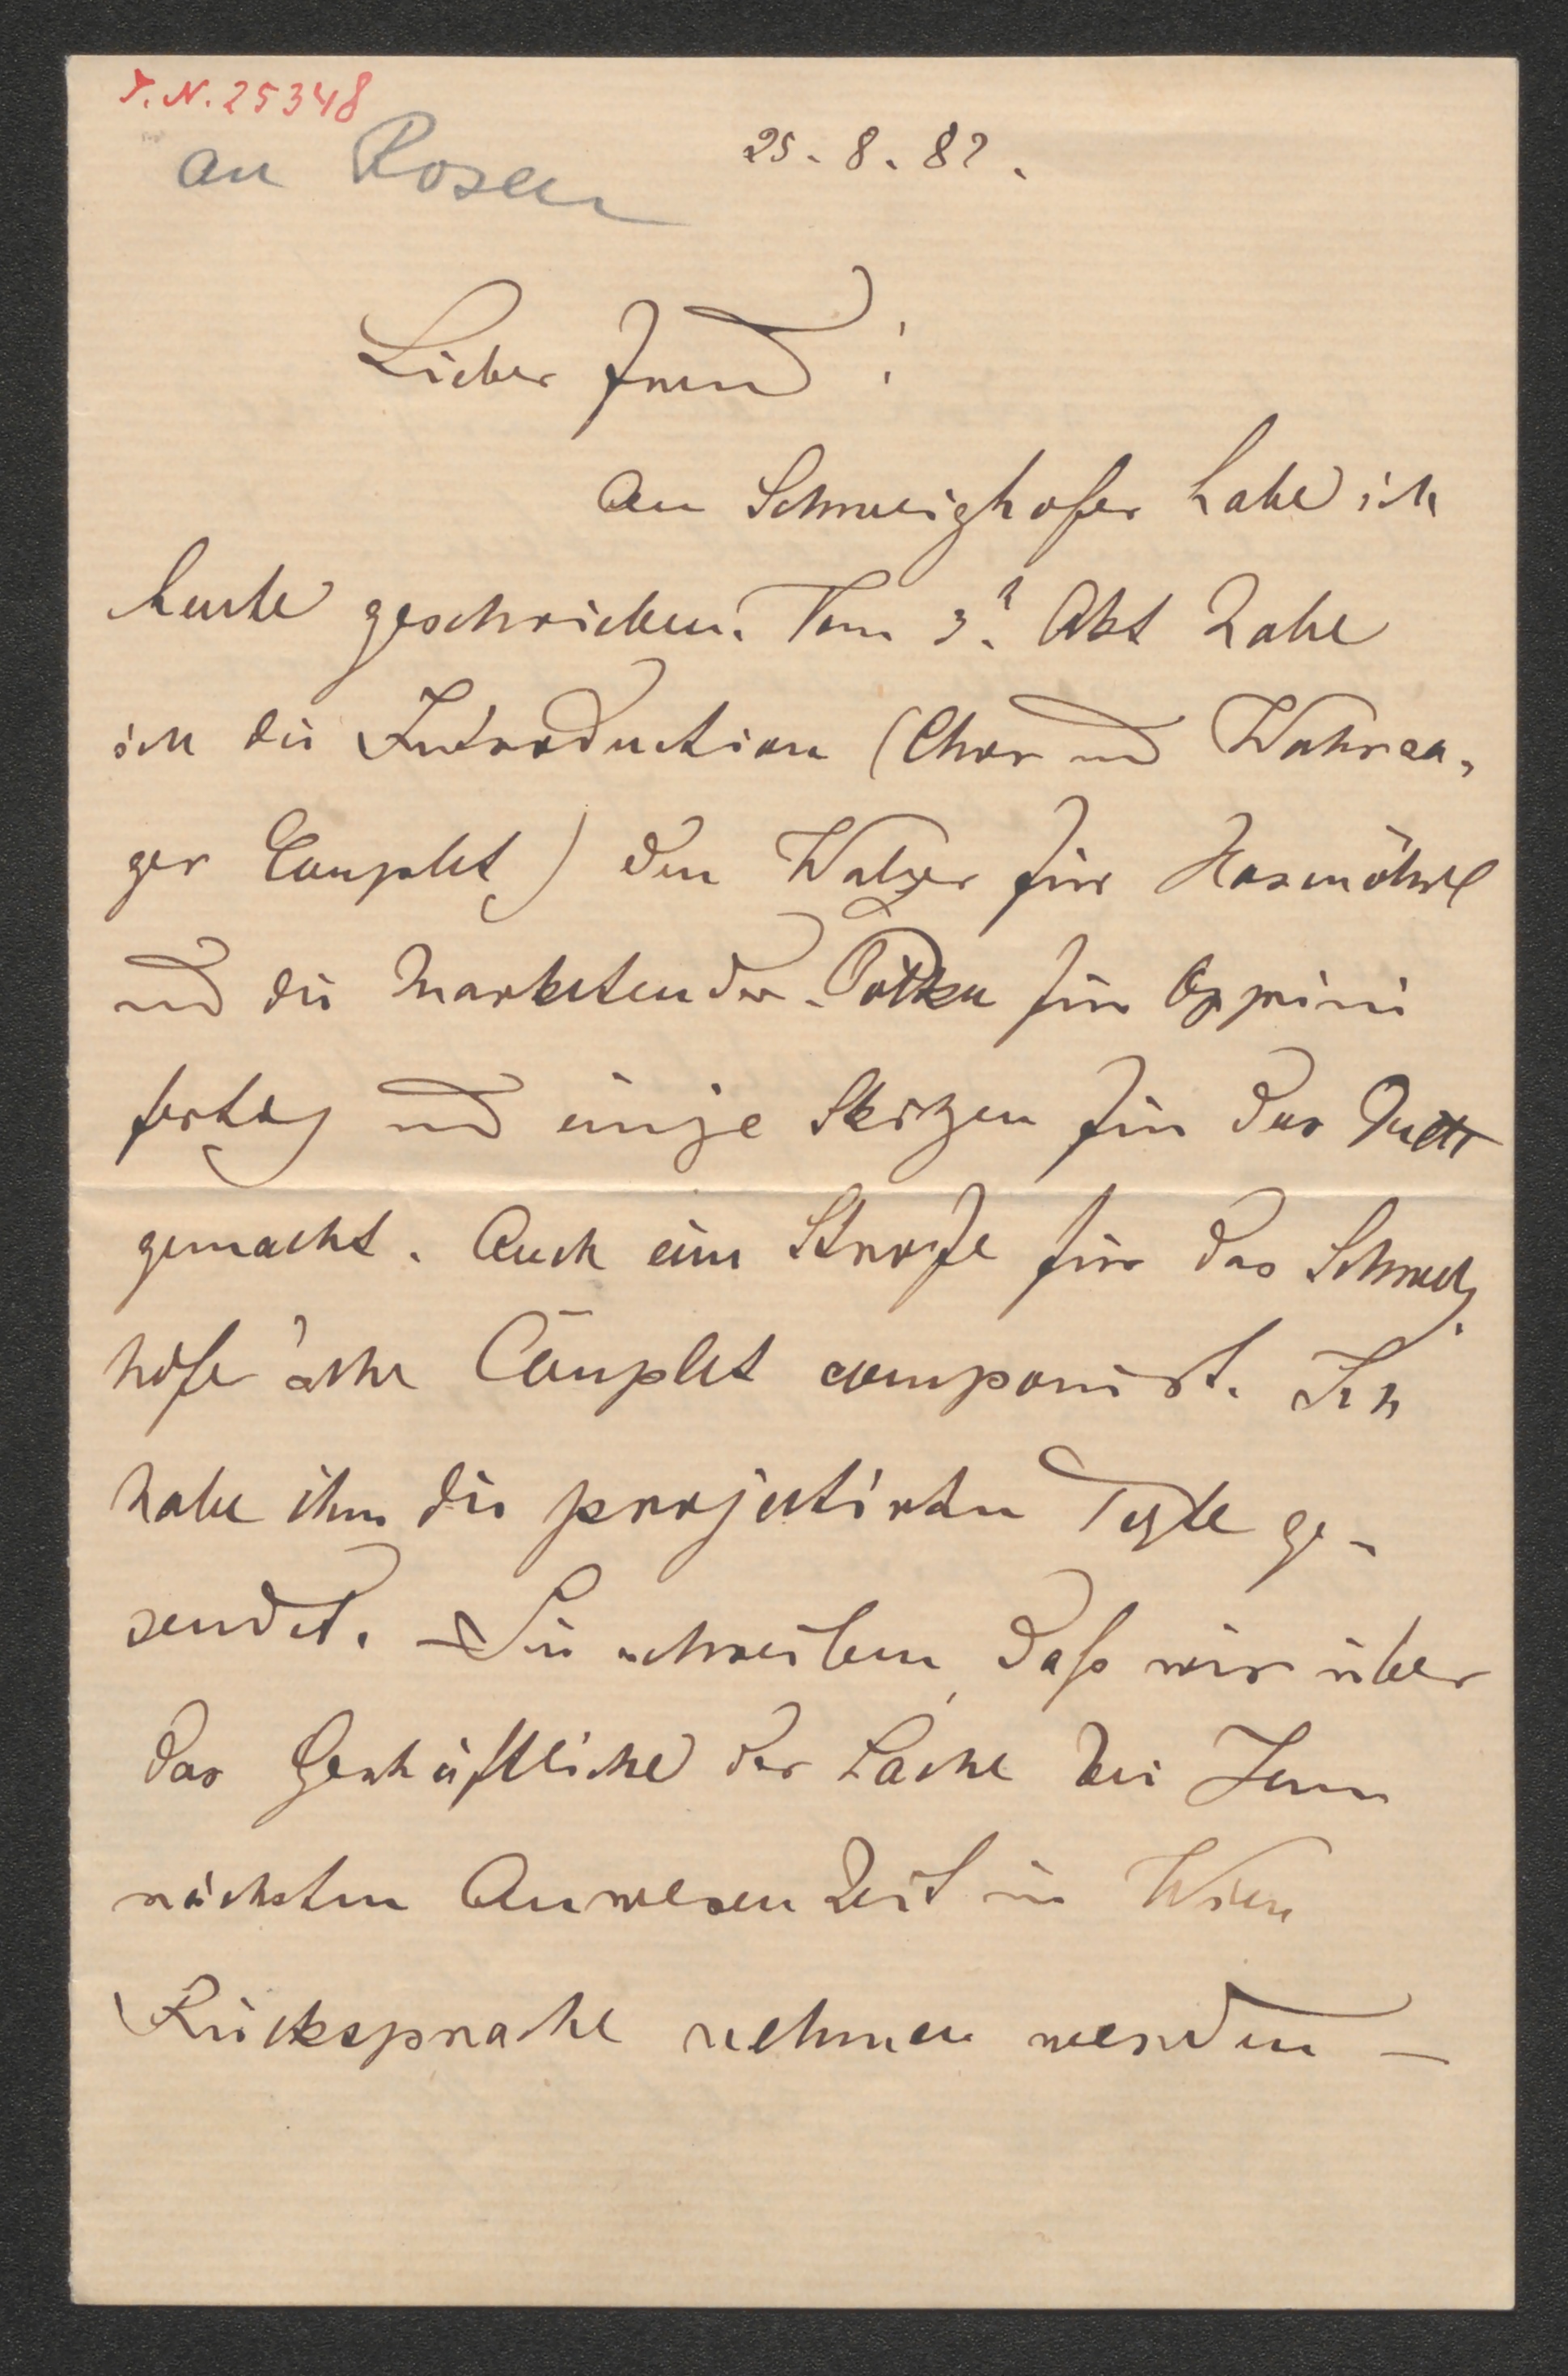 I. N. 25348
an Rosen
25. 8. 82.
Lieber Freund!
An Schweighofer habe ich
heute geschrieben. Vom 3t. Akt habe
ich die Introduction (Chor und Wahrsa-
ger Couplet) den Walzer für Hasenöhrl
und die Marketender-Polka für Oppini
fertig und einige Skizzen für das Duett
gemacht. Auch eine Strofe für das Schweig-
hofer'sche Couplet componirt. Ich
habe ihm die projectirten Texte ge-
sendet. – Sie schreiben, daß wir über
das Geschäftliche der Sache bei Ihrer
nächsten Anwesenheit in Wien
Rücksprache nehmen werden –